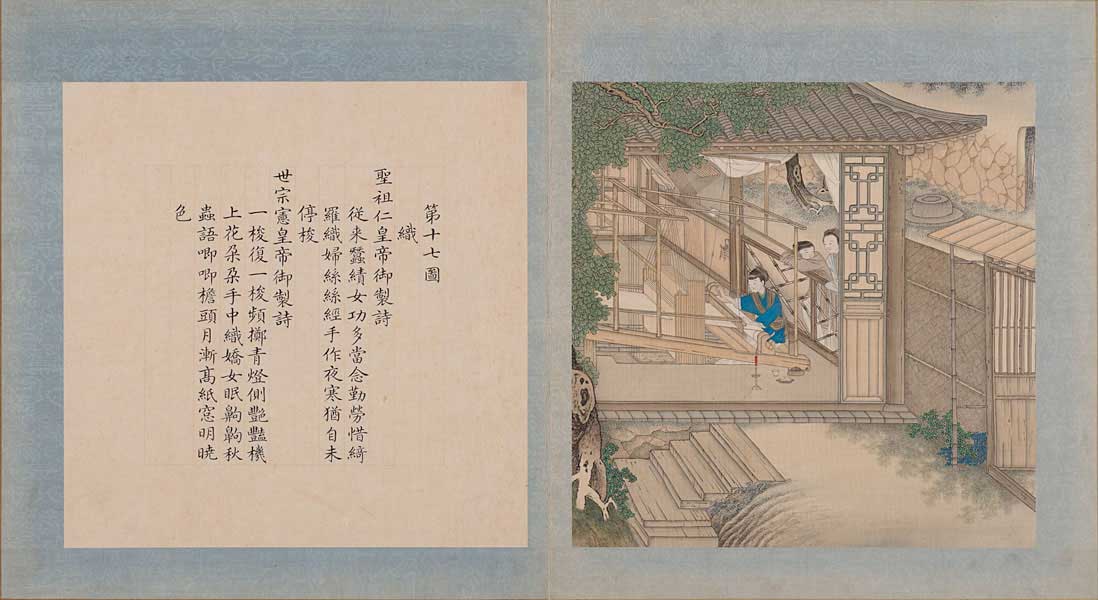 第十七圖
織
聖祖仁皇帝御製詩
從來蠶績女功多當念勤勞惜綺
羅織婦絲絲經手作夜寒猶自未
停梭
世宗憲皇帝御製詩
一梭復一梭頻擲青燈側艷豔機
上花朵朵手中織嬌女眠齁齁秋
蟲語唧唧檐頭月漸高紙窓明曉
色